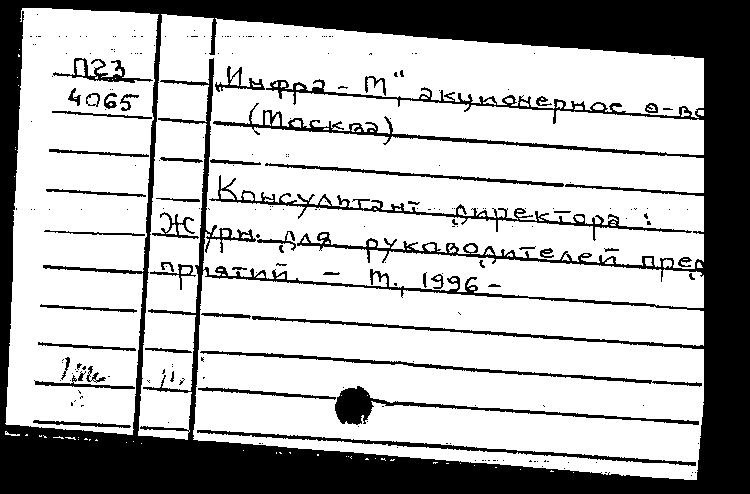 П23
4065
„Инфра - М", акционерное о-во
(Москва)
Консультант директора :
Журн. для руководителей пред
приятий. - М., 1996 -